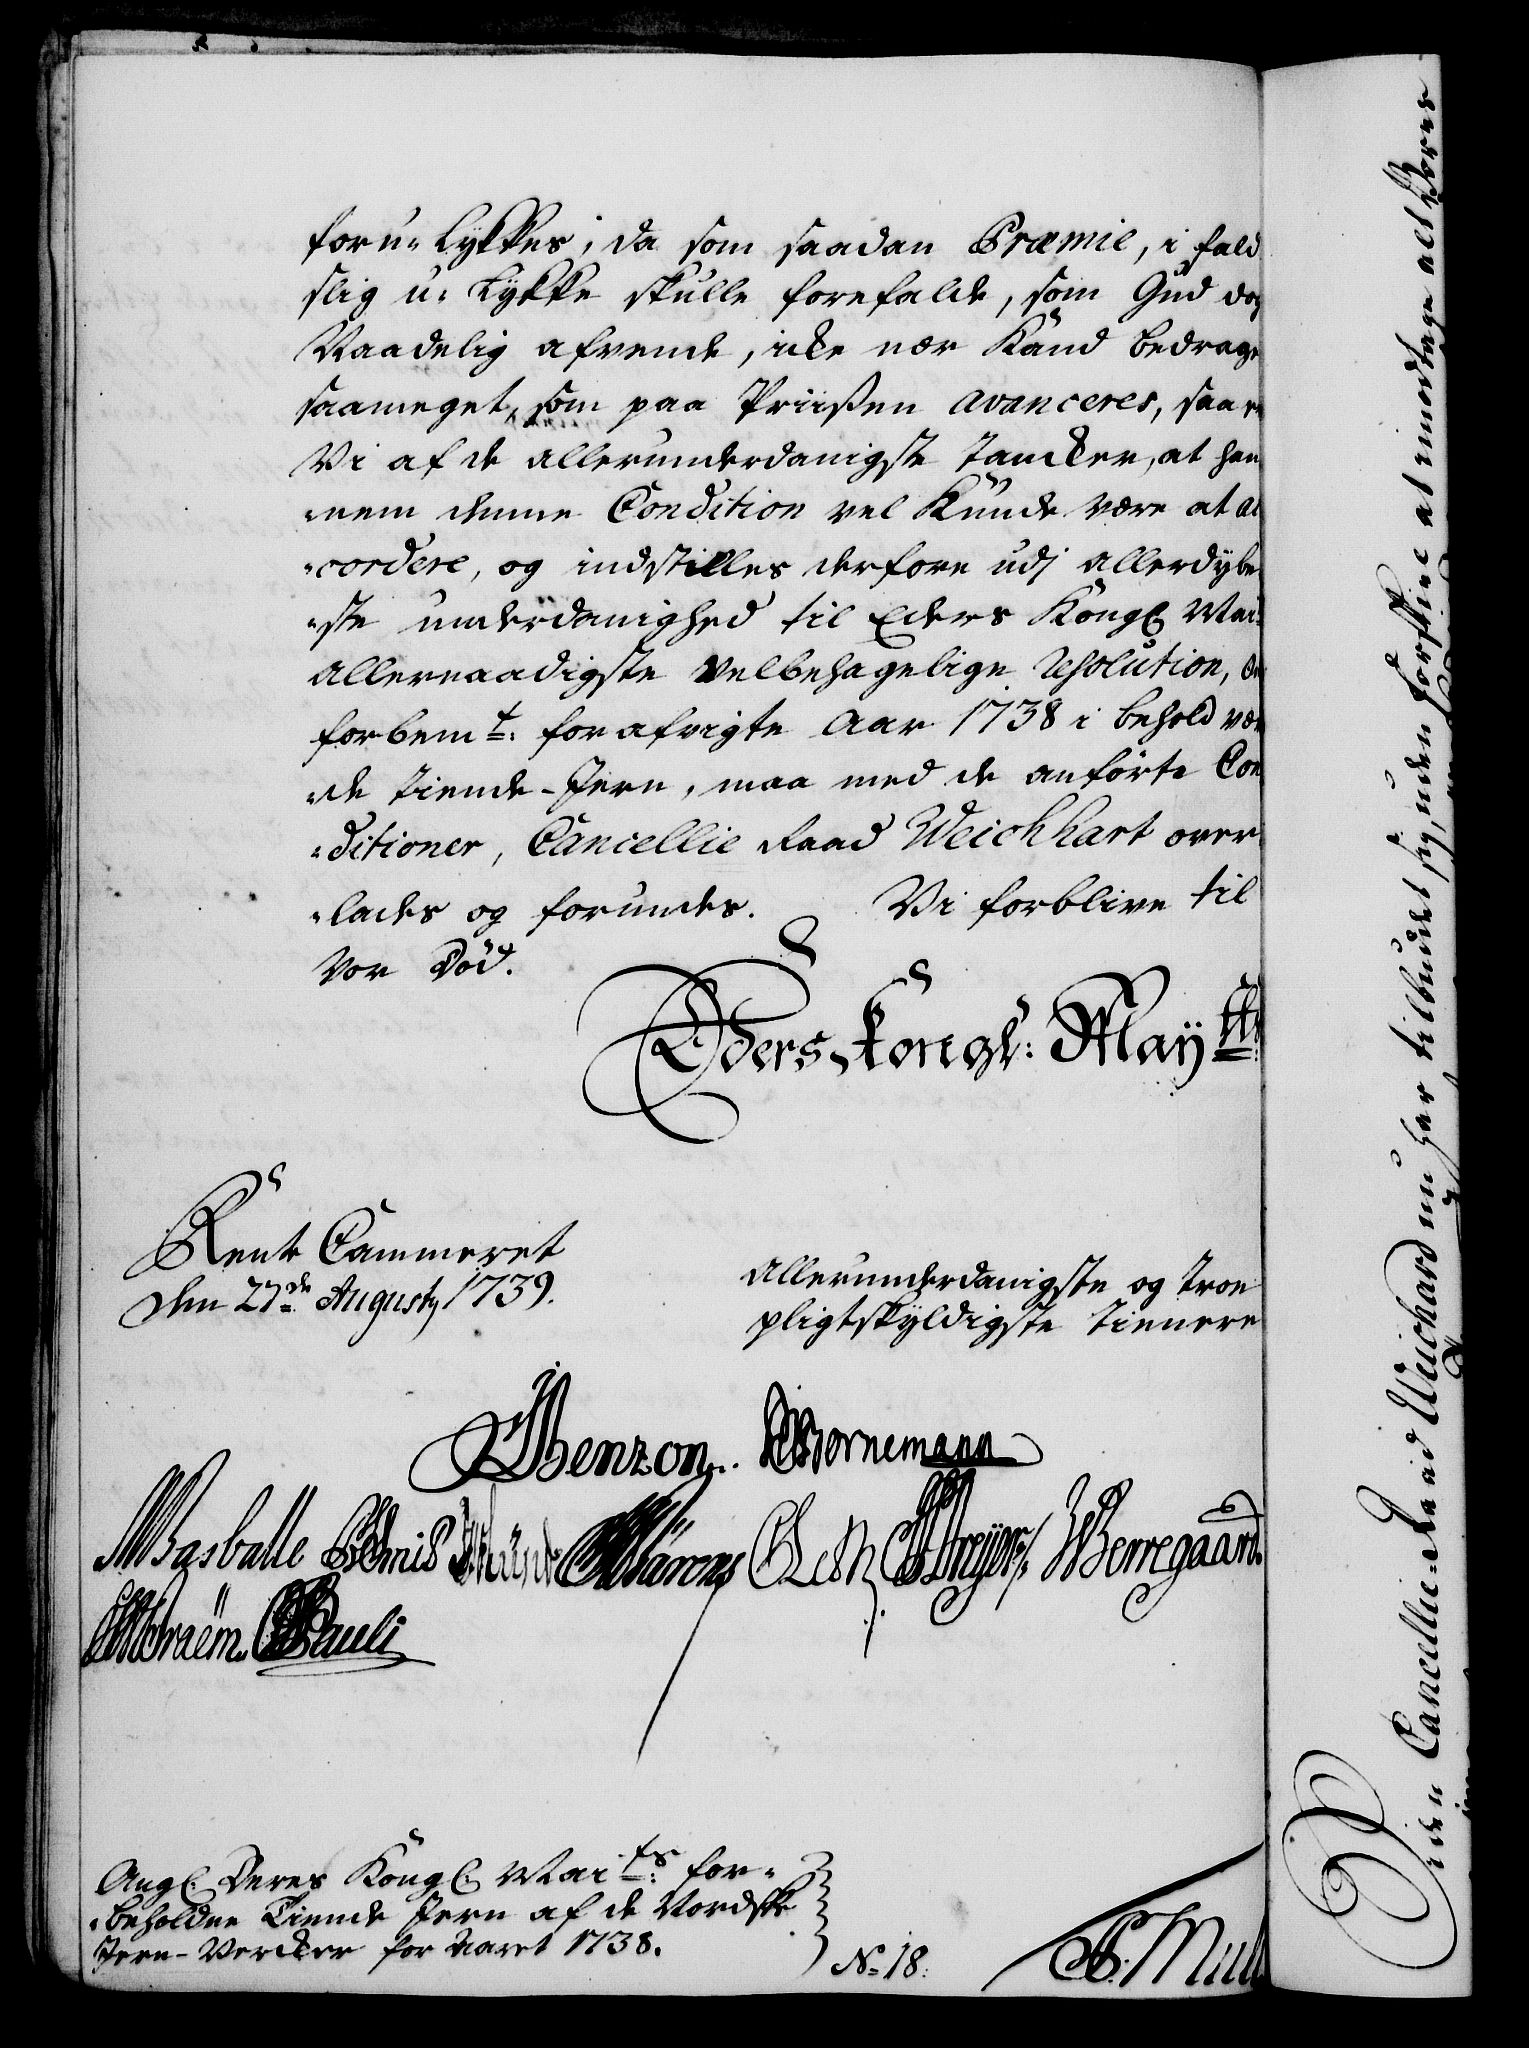 foru⸗lykkes; da som saadan Præmie, i fald
slig u⸗lykke skulle forefalde, som Gud dog
Naadelig afvende, icke nær kand bedrage
saameget, som paa Priisen avanceres, saa er
Vi af de allerunderdanigste Tancker, at hen⸗
⸗nem denne Condition vel kunde være at ac⸗
⸗cordere, og indstilles derfore udj allerdybe⸗
⸗ste underdanighed til Eders Kongl Mai:
allernaadigste velbehagelige Resolution, om
forbemt: for afvigte Aar 1738 i behold væren⸗
⸗de Tiende-Jern, maa med de anførte Con⸗
⸗ditioner, Cancellie Raad Weichhart over⸗
⸗lades og forundes. Vi forblive til
vor Død.
Eders Kongl: Mayts:
Rente Cammeret
den 27de Augusty 1739.
allerunderdanigste og troe
pligtskyldigste tienere
Benzon. Bornemann
Basballe Schmid Munch Klärens OLeth Dreyer Berregaard.
Braëm. Pauli
Angl. Deres Kongl. Maits: for⸗
⸗beholdne Tiende Jern af de Nordske
Jern-Vercker for Aaret 1738.
No 18.
S. Müll
Siden Cancellie-Raad Weichard nu har tilbudet sig, uden forskiæl at imodtage alt Vores